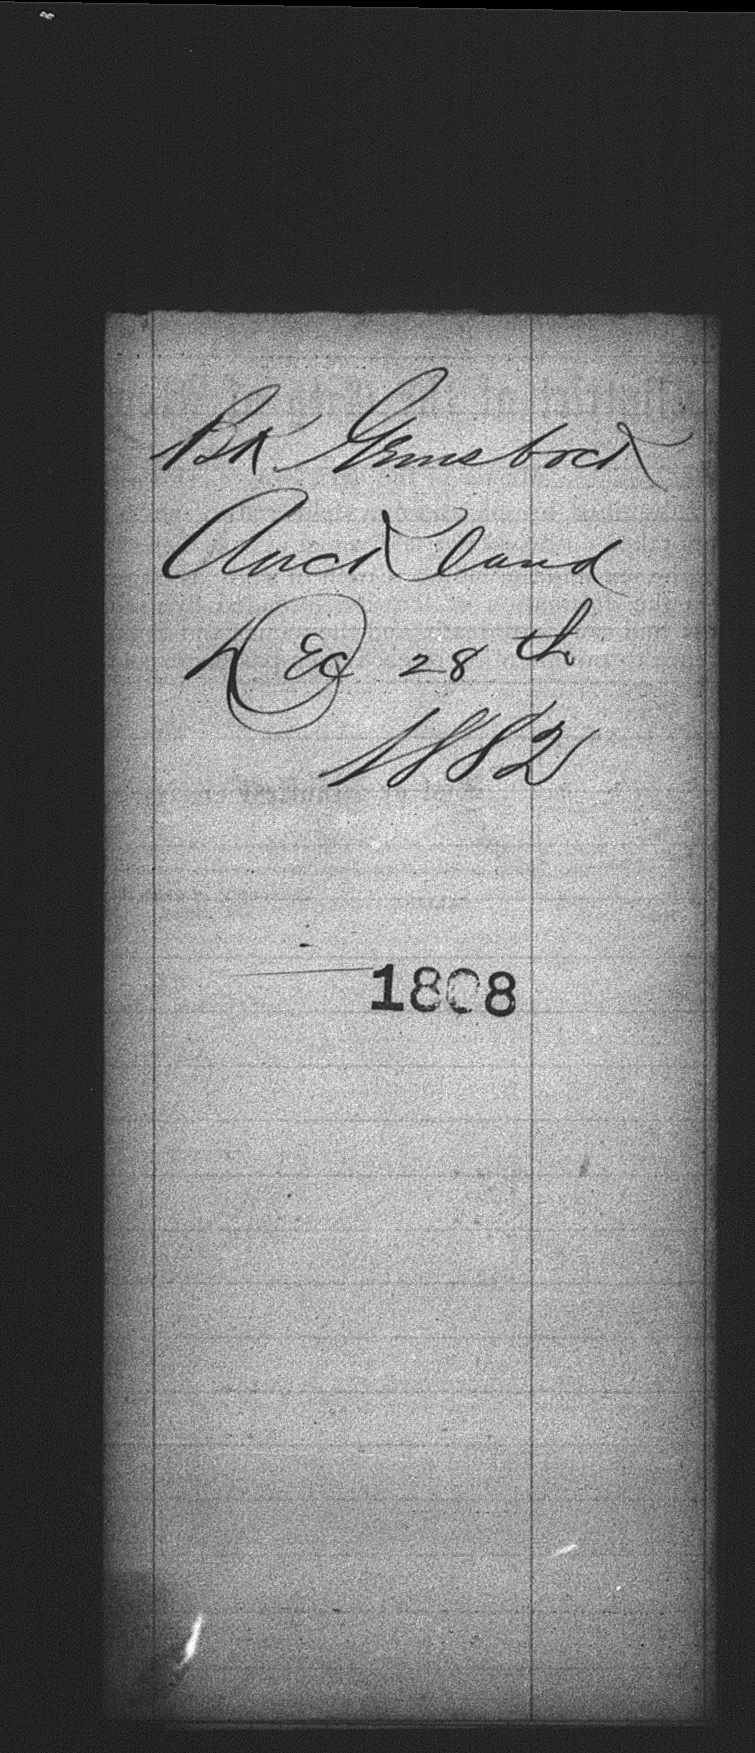 Bk Gemsbock
Auckland
Dec 28th
1882
1808